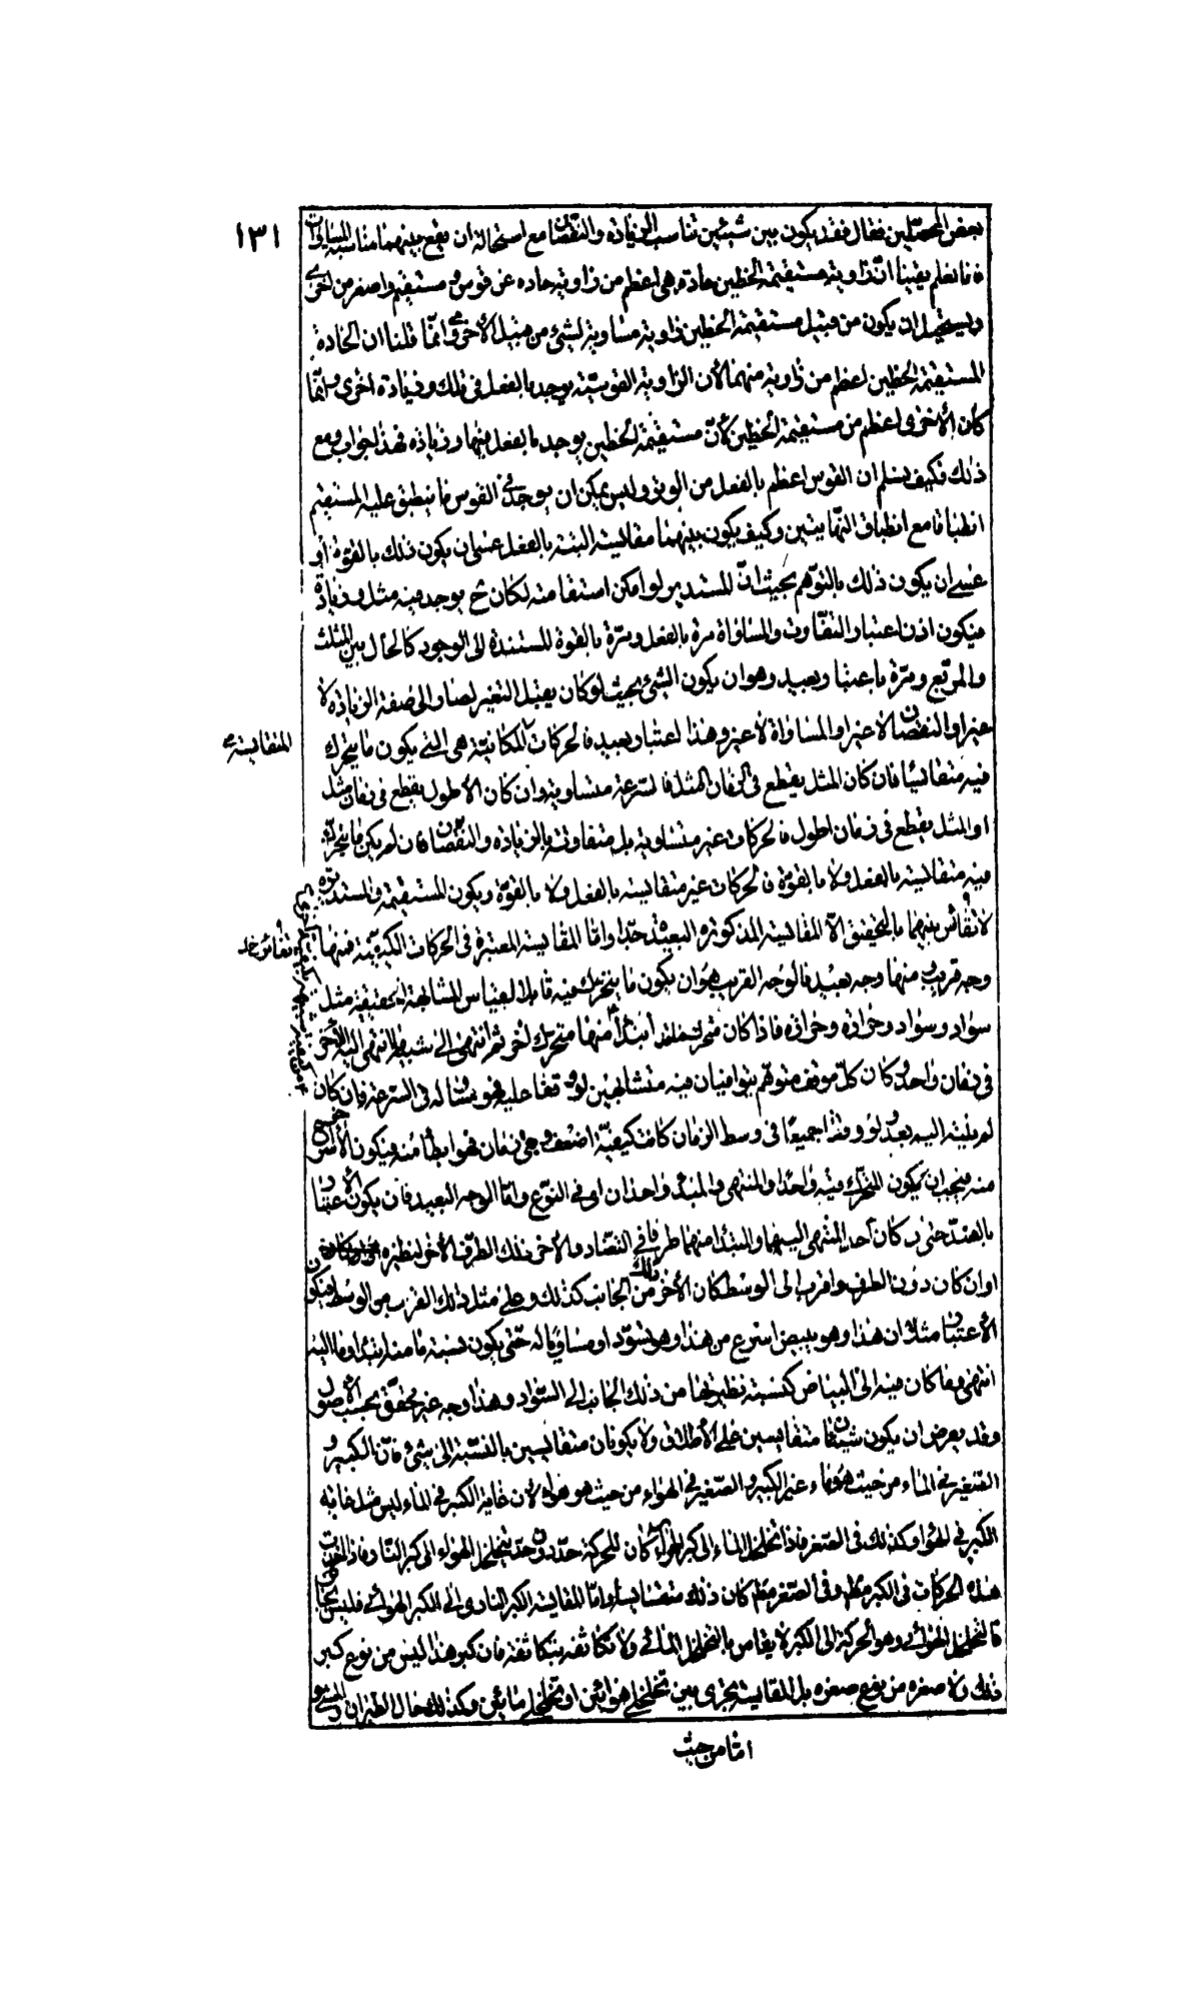 ١٣١
بعض المحصلين فقال فقد يكون بين شيئين تناسب الزيادة والنقصان مع استحالة ان يقع بينهما مناسبة المساواة
فانا نعلم يقينا ان زاوية مستقيمة الخطين حادة هى اعظم من زاوية حادة عن قوس و مستقيم واصغر من اخرى
ويستحيل ان يكون من قبيل مستقيمة الخطين زاوية مساوية لشئ من قبيل الأخرى وانما قلنا ان الحادة
المستقيمة الخطين اعظم من زاوية منهما لأن الزاوية القوسية يوجد بالفعل فى تلك وزيادة اخرى وانما
كان الأخرى اعظم من مستقيمة الخطين لأن مستقيمة الخطين يوجد بالفعل فيها وزيادة فهذا جواب ومع
ذلك فكيف يسلم ان القوس اعظم بالفعل من الوتر وليس يمكن ان يوجد فى القوس ما ينطبق عليه المستقيم
انطباقا مع انطباق النهايتين وكيف يكون بينهما مقايسة البتة بالفعل عسى ان يكون ذلك بالقوة او
عسى ان يكون ذلك بالتوهم بحيث ان المستدير لو امكن استقامته لكان ح يوجد فيه مثل وزيادة
فيكون اذن اعتبار التفاوت والمساواة مرة بالفعل ومرة بالقوة المستندة الى الوجود كالحال بين المثلث
والمربع ومرة باعتبار بعيد وهو ان يكون الشئ بحيث لو كان يقبل التغير لصار الى صفة الزيادة لا
غير او النقصان لا غير او المساواة لا غير وهذا اعتبار بعيد فالحركات المكانية هى التى يكون ما يتحرك
المتقايسة
فيه متقايسا فان كان المثل يقطع فى الزمان المثل فالسرعة متساوية وان كان الأطول يقطع فى زمان مثل
او المثل يقطع فى زمان اطول فالحركات غير متساوية بل متفاوتة بالزيادة والنقصان فان لم يكن ما يتحرك
فيه متقايسة بالفعل ولا بالقوة فالحركات غير متقايسة بالفعل ولا بالقوة ويكون المستقيمة والمستديرة
لا تقاس بينهما بالتحقيق الا المقايسة المذكورة البعيدة جدا واما المقايسة المعتبرة فى الحركات الكيفية فمنها
وجه قريب و منها وجه بعيد فالوجه القريب هو ان يكون ما يتحرك فيه قابلا لقياس المشابهة الحقيقية مثل
سواد وسواد وحرارة وحرارة فاذا كان متحرك قد ابتدأ منها متحرك اخر ثم انتهى الى شبيه ما انتهى اليه الأخر
فى زمان واحد و كان كل موقف متوهم يتوافيان فيه متشابهين لو وقفا عليه فهو مساو له فى السرعة فان كان
لم ينته اليه بعد و لو وقفا جميعا فى وسط الزمان كانت كيفيته اضعف فهو ابطأ منه فيكون الأسرع
منه فيجب ان يكون المتحرك فيه واحدا والمنتهى والمبدأ واحدان اى فى النوع واما الوجه البعيد فان يكون الأعتبار
بالضد حتى كان احد المنتهى اليهما والمبتدأ منهما طرفا فى التضاد والأخر ذلك الطرف الأخر لنظيره
او ان كان دون الطرف و اقرب الى الوسط كان الأخر من ذلك الجانب كذلك وعلى مثل ذلك القرب من الوسط فيكون
الأعتبار مثلا ان هذا وهو يبيض اسرع من هذا وهو يسود او مساو له حتى يكون نسبة ما منه ابتدأ وما اليه
انتهى وما كان فيه الى البياض كنسبة نظيرتها من ذلك الجانب الى السواد وهذا وجه غير محقق بحسب الأصول
وقد يعرض ان يكون شيئان متقايسين على الأطلاق ولا يكونان متقايسين بالنسبة الى شئ فان الكبير و
الصغير فى الماء من حيث هو ماء غير الكبير و الصغير فى الهواء من حيث هو هواء لأن غاية الكبر فى الماء ليس مثل غاية
الكبر فى الهواء وكذلك فى الصغر فاذا تخلخل الماء الى كبر الهواء كان للحركة حد دون حد يتخلخل الهواء الى كبر النار فاذا اخذت
هذه الحركات فى الكبر مطلقا وفى الصغر مطلقا كان ذلك متقايسا واما المقايسة الكبر النارى الى الكبر الهوائى فليس
فالتخلخل الهوائى وهو الحركة الى الكبر لا يقاس بالتخلخل المائى ولا تكاثفه بتكاثفه فان كبر هذا ليس من نوع كبر
ذلك ولا صغره من نوع صغره بل المقايسة يجرى بين تخلخلى هوائين او تخلخلى مائين وكذلك حال الطيران والمشى
اما من حيث